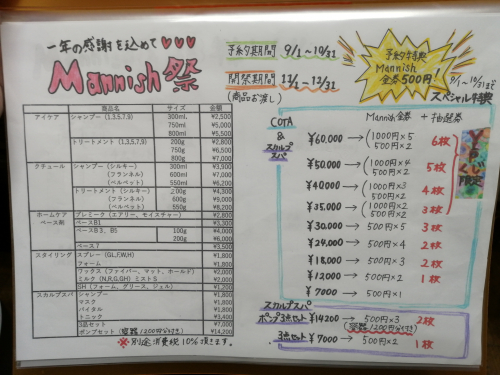 一年の感謝を込めて
Mannish祭
予約期間 9/1〜10/31
開祭期間 11/1〜12/31
(商品お渡し)
予約特典
Mannish
金券500円!
9/1〜10/31まで
スペシャル特典
商品名 サイズ 金額
アイケア シャンプー (1,3,5,7,9) 300ml ¥2,500
750ml ¥5,000
800ml ¥5,500
トリートメント (1,3,5,7,9) 200g ¥2,800
750g ¥6,500
800g ¥7,000
クチュール シャンプー (シルキー) 300ml ¥3,900
(フランネル) 600ml ¥7,000
(ベルベット) 550ml ¥6,200
トリートメント (シルキー) 200g ¥4,300
(フランネル) 600g ¥9,000
(ベルベット) 550g
ホームケア ベース剤 プレミーク (エアリー、モイスチャー) ¥2,800
ベースB1 ¥3,300
ベースB3、B5 100g ¥4,000
200g ¥6,000
ベース7 ¥3,500
スタイリング スプレー (GL,F,W,H) ¥2,000
フォーム ¥1,800
ワックス (ファイバー、マット、ホールド) ¥2,000
ミルク (N,R,G,GH) ミストS ¥2,000
SH (フォーム、グリース、ジェル) ¥1,200
スカルプスパ シャンプー ¥1,800
マスク
バイタル ¥1,800
トニック ¥3,400
3品セット ¥7,000
ポンプセット (容器1200円分付き) ¥14,200
※別途消費税10%頂きます。
COTA
&
スカルプ
スパ
Mannish金券 + 抽選券
¥60,000 → (1000円×5 500円×2 6枚
¥50,000 → (1000円×4 500円×2 5枚
¥40000 → (1000円×3 500円×2 4枚
¥35,000 → (1000円×2 500円×2 3枚
¥30,000 → 500円×5 3枚
¥24,000 → 500円×4 2枚
¥18,000 → 500円×3 2枚
¥12000 → 500円×2 1枚
¥7000 → 500円×1
くじ
限定
スカルプスパ
ポンプ3点セット ¥14200 → 500円×3 2枚
(容器1200円分付き)
3点セット ¥7000 → 500円×2 1枚